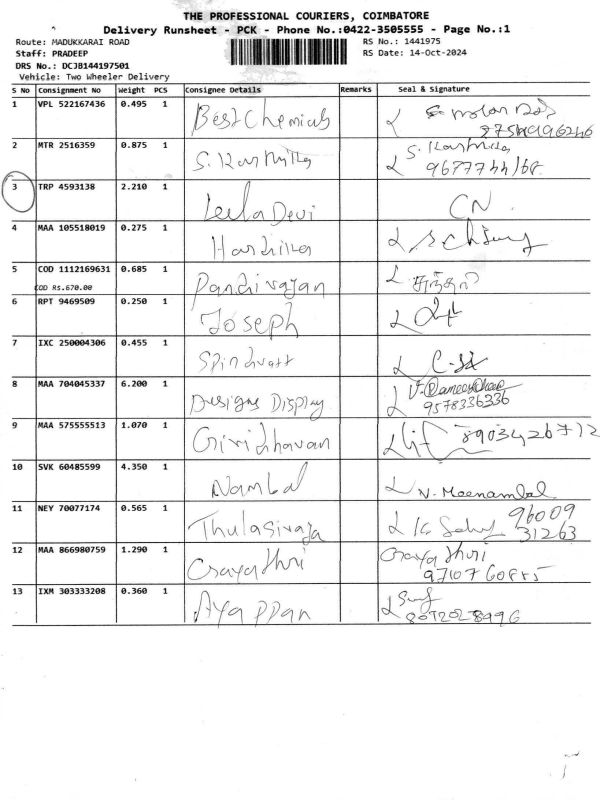 THE PROFESSIONAL COURIERS, COIMBATORE
Delivery Runsheet - PCK - Phone No.:0422-3505555 - Page No.:1
Route: MADUKKARAI ROAD RS No.: 1441975
Staff: PRADEEP RS Date: 14-Oct-2024
DRS No.: DCJB144197501
Vehicle: Two Wheeler Delivery
S No Consignment No Weight PCS Consignee Details Remarks Seal & Signature
1 VPL 522167436 0.495 1 Best Chemicals
2 MTR 2516359 0.875 1 S. Karthika S. Karthika
3 TRP 4593138 2.210 1 Leela Devi CN
4 MAA 105518019 0.275 1 Harshika
5 COD 1112169631 0.685 1 Pandirajan
COD Rs.670.00
6 RPT 9469509 0.250 1 Joseph
7 IXC 250004306 0.455 1
8 MAA 704045337 6.200 1 Designs Display
9578336336
9 MAA 575555513 1.070 1 Giridharan 8903426712
10 SVK 60485599 4.350 1 Nambal N. Meenambal
11 NEY 70077174 0.565 1 Thulasiraja 96009
31263
12 MAA 866980759 1.290 1 Gayathri Gayathri
9710760885
13 IXM 303333208 0.360 1 Ayappan